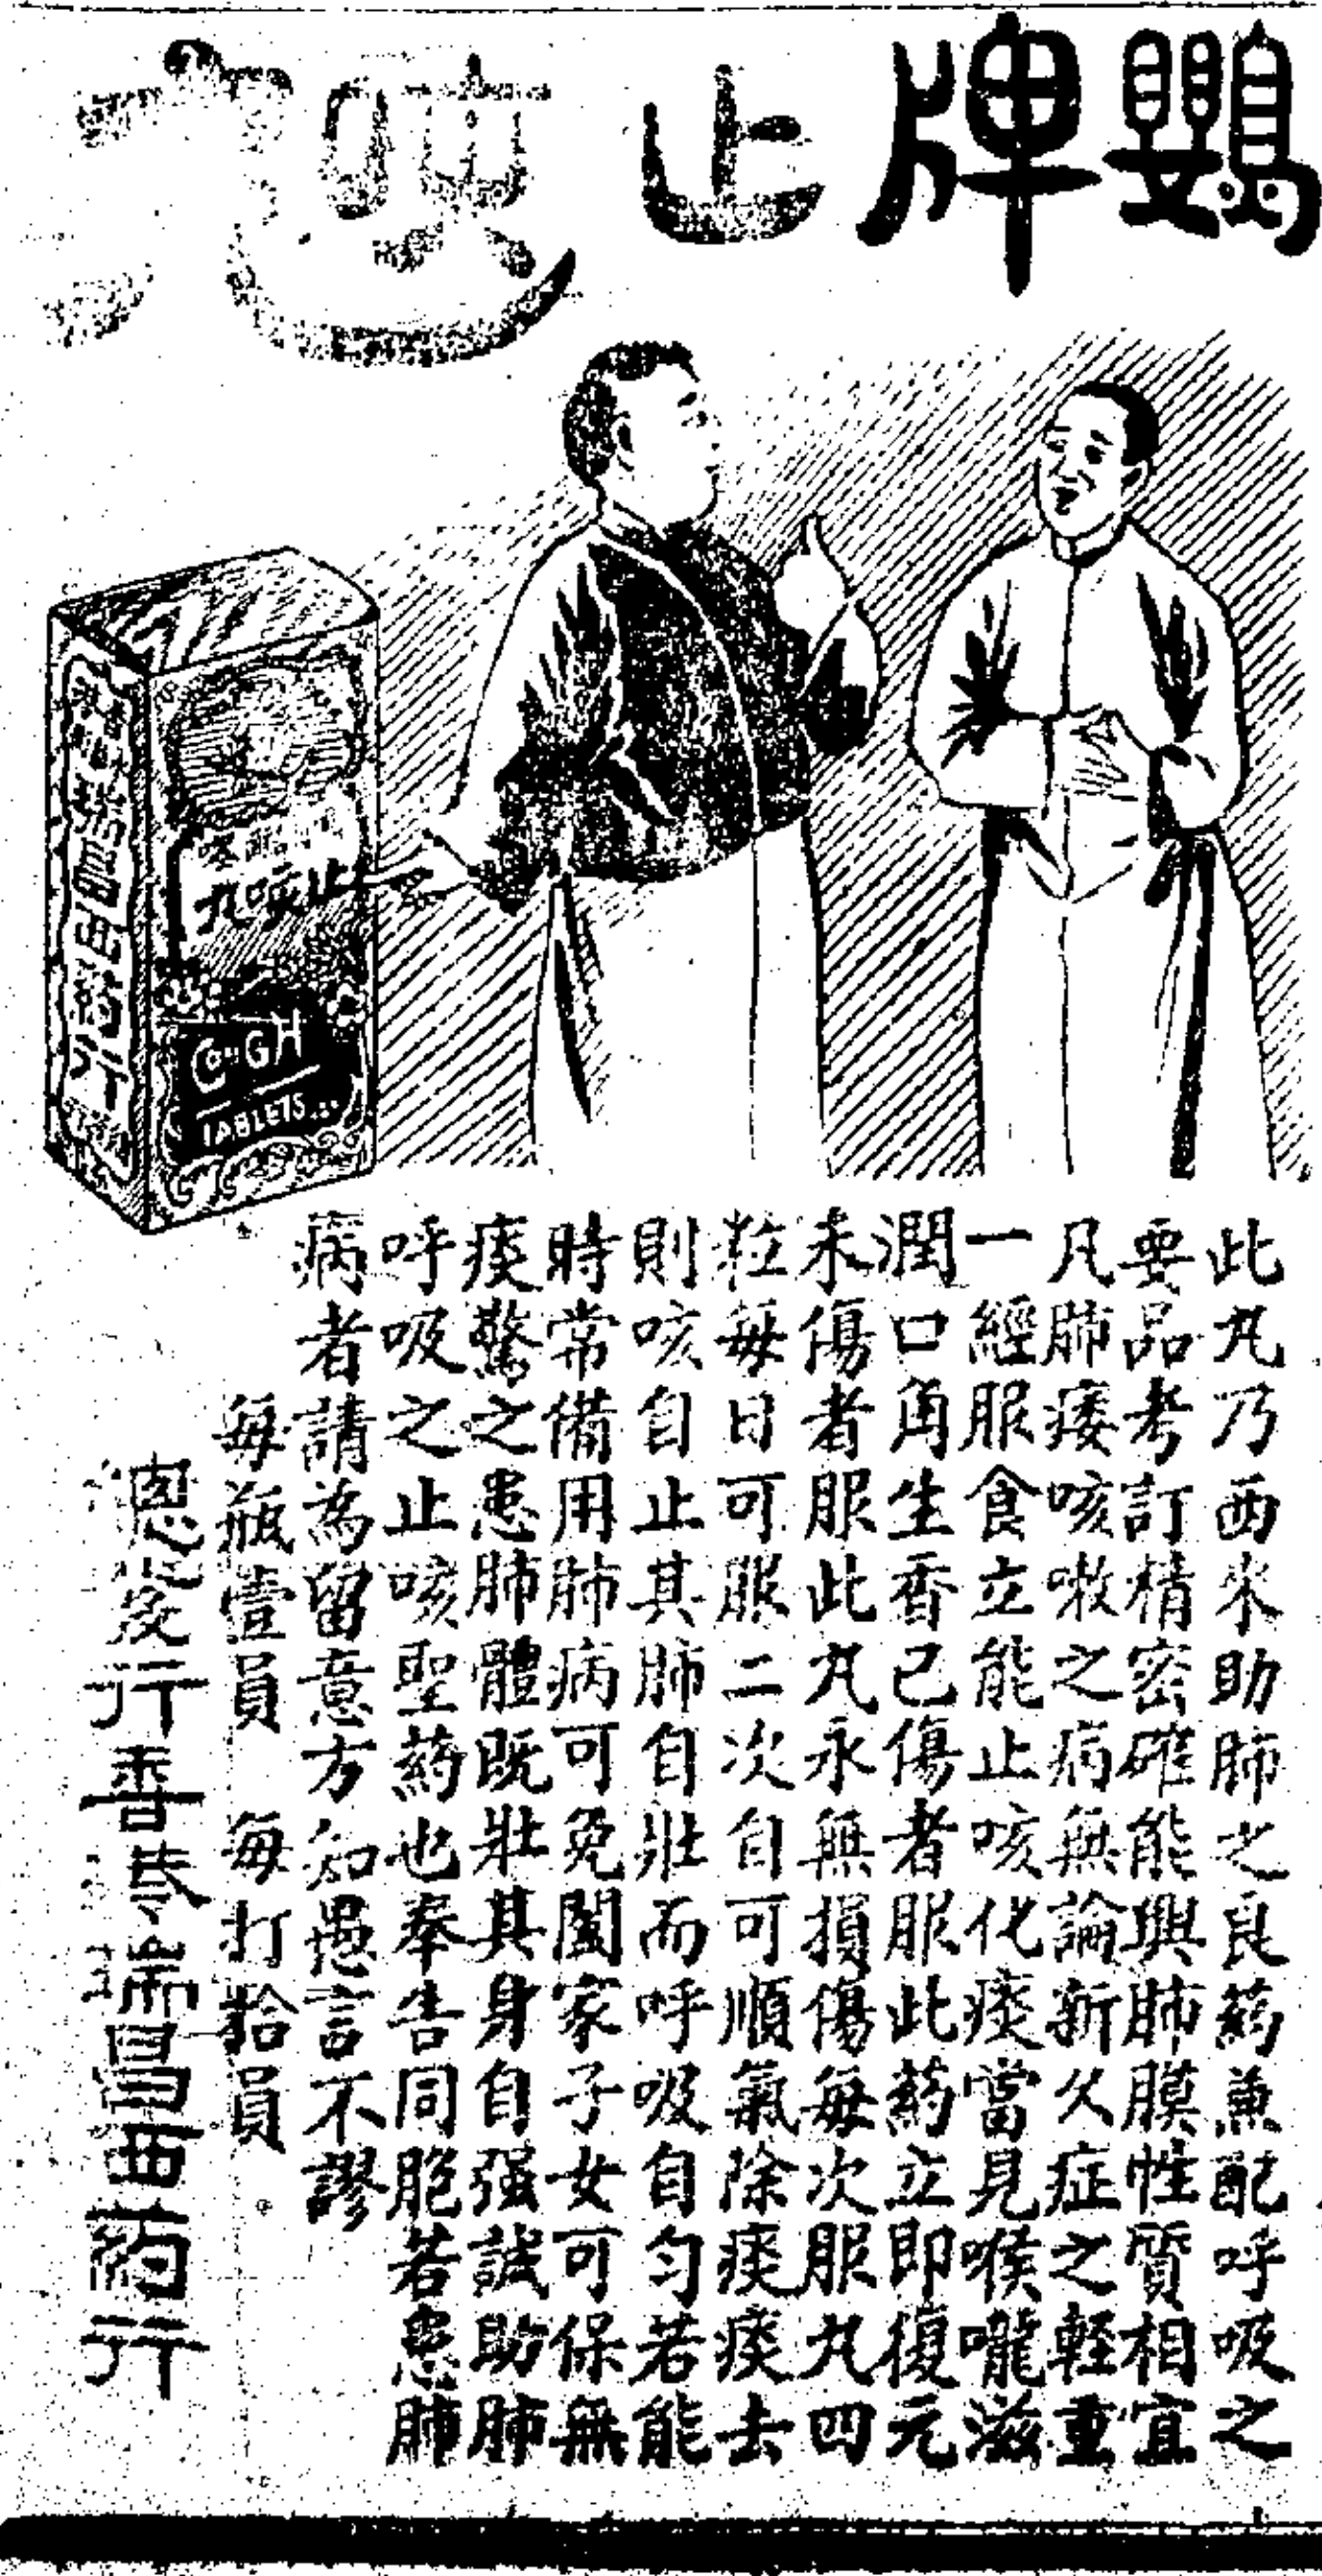 鸚牌止咳丸
止咳丸
COUGH
TABLETS
瑞昌西药行
此丸乃西來助肺之良药兼配呼吸之
要品考訂精密確能與肺膜性質相宜
凡肺痿咳嗽之病無論新久症之輕重
一經服食立能止咳化痰當見喉嚨滋
潤口角生香已傷者服此药立即復元
未傷者服此丸永無損傷每次服丸四
粒每日可服二次自可順氣除痰痰去
則咳自止其肺自壯而呼吸自匀若能
時常備用肺病可免闔家子女可保無
痰驚之患肺體既壯其身自强誠助肺
呼吸之止咳聖药也奉告同胞若患肺
病者請為留意方知愚言不謬
每瓶壹員 每打拾員
總發行善巷瑞昌西药行